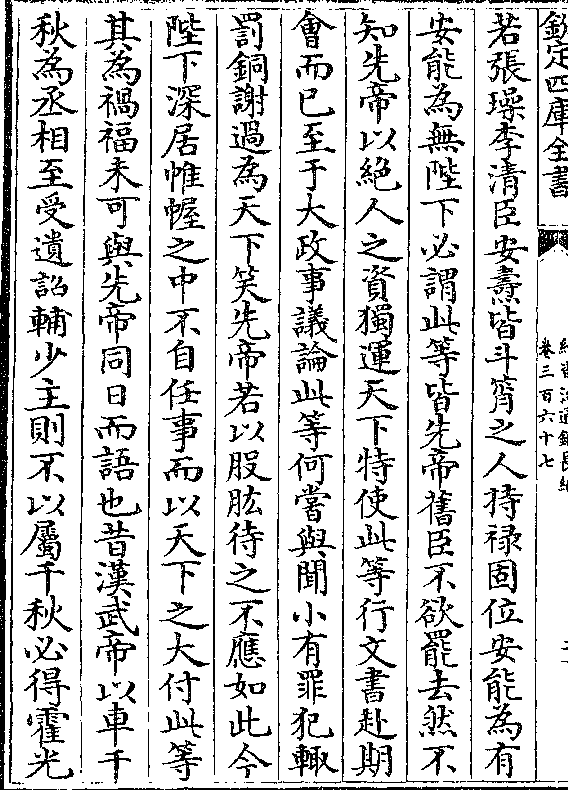 欽定四庫全書
卷三百六十七
若張璪李清臣安燾皆斗筲之人持禄固位安能為有
安能為無陛下必謂此等皆先帝舊臣不欲罷去然不
知先帝以絕人之資獨運天下特使此等行文書赴期
會而已至于大政事議論此等何嘗與聞小有罪犯輙
罰銅謝過為天下笑先帝若以股肱待之不應如此今
陛下深居帷幄之中不自任事而以天下之大付此等
其為禍福未可與先帝同日而語也昔漢武帝以車千
秋為丞相至受遺詔輔少主則不以屬千秋必得霍光